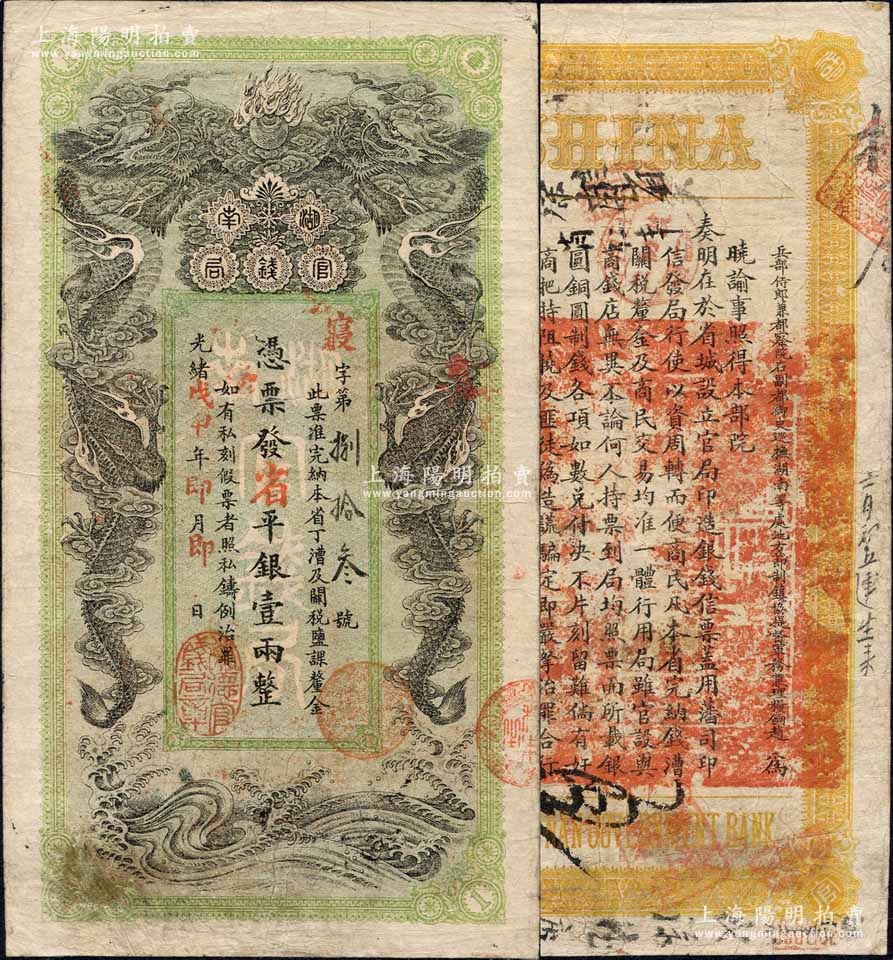 上海陽明拍賣
www.yangmingauction.com
湖南
官錢局
寢字第捌拾叁號
此票准完納本省丁漕及關税鹽課釐金
憑票發省平銀壹兩整
如有私刻假票者照私鑄例治罪
光緒戊申年即月即日
1
上海陽明拍賣
www.yangmingauction.com
CHINA
兵部侍郎兼都察院右副都御史巡撫湖南等處地方
為
曉諭事照得本部院
奏明在於省城設立官局印造銀錢信票蓋用藩司印
信發局行使以資周轉而便商民凡本省完納錢漕
關税釐金及商民交易均准一體行用局雖官設與
商錢店無異不論何人持票到局均照票面所載銀
圓銅圓制錢各項如數兌付決不片刻留難倘有奸
商把持阻撓及匪徒偽造誆騙定即嚴拏治罪合行
GOVERNMENT BANK
上海陽明拍賣
www.yangmingauction.com